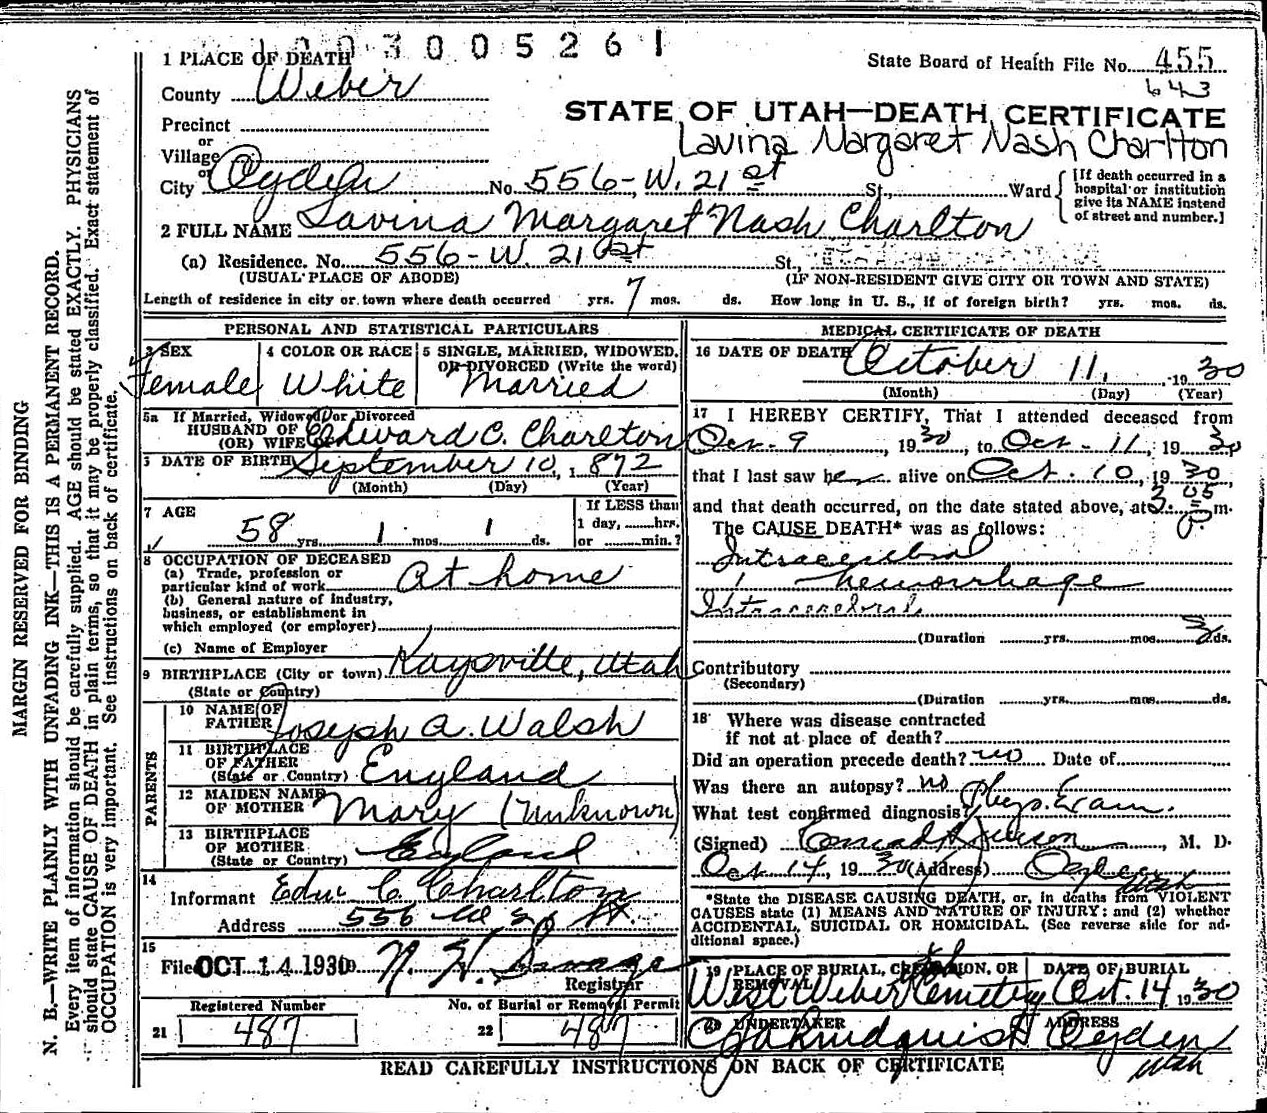 1003005261
1 PLACE OF DEATH
State Board of Health File No. 455
County Weber
643
STATE OF UTAH—DEATH CERTIFICATE
Precinct
or
Lavina Margaret Nash Charlton
Village
or
City Ogden No. 556-W. 21st St., Ward
[If death occurred in a hospital or institution give its NAME instead of street and number.]
2 FULL NAME Lavina Margaret Nash Charlton
(a) Residence. No. 556-W. 21st St.,
(USUAL PLACE OF ABODE) (IF NON-RESIDENT GIVE CITY OR TOWN AND STATE)
Length of residence in city or town where death occurred yrs. 7 mos. ds. How long in U. S., if of foreign birth? yrs. mos. ds.
PERSONAL AND STATISTICAL PARTICULARS
3 SEX
Female
4 COLOR OR RACE
White
5 SINGLE, MARRIED, WIDOWED,
OR DIVORCED (Write the word)
Married
5a If Married, Widowed or Divorced
HUSBAND OF
(OR) WIFE OF Edward C. Charlton
6 DATE OF BIRTH September 10, 1872
(Month) (Day) (Year)
7 AGE
58 yrs. 1 mos. 1 ds.
If LESS than
1 day, hrs.
or min.?
8 OCCUPATION OF DECEASED
(a) Trade, profession or
particular kind of work At home
(b) General nature of industry,
business, or establishment in
which employed (or employer)
(c) Name of Employer
9 BIRTHPLACE (City or town) Kaysville, Utah
(State or Country)
PARENTS
10 NAME OF
FATHER Joseph A. Walsh
11 BIRTHPLACE
OF FATHER
(State or Country) England
12 MAIDEN NAME
OF MOTHER Mary (Unknown)
13 BIRTHPLACE
OF MOTHER
(State or Country) England
14
Informant Edw C. Charlton
Address 556
15
Filed OCT 14 1930
Registrar
Registered Number
21 487
No. of Burial or Removal Permit
22 487
MEDICAL CERTIFICATE OF DEATH
16 DATE OF DEATH October 11, 1930
(Month) (Day) (Year)
17 I HEREBY CERTIFY, That I attended deceased from
Oct. 9, 1930, to Oct. 11, 1930
that I last saw her alive on Oct. 10, 1930,
and that death occurred, on the date stated above, at 3:05 P m.
The CAUSE DEATH* was as follows:
Intracerebral
hemorrhage
Intracerebral
(Duration yrs. mos. 3 ds.
Contributory
(Secondary)
(Duration yrs. mos. ds.
18 Where was disease contracted
if not at place of death?
Did an operation precede death? no Date of
Was there an autopsy? no
What test confirmed diagnosis? Phys. Exam.
(Signed) M. D.
Oct 14, 1930 (Address) Ogden
Utah
*State the DISEASE CAUSING DEATH, or, in deaths from VIOLENT
CAUSES state (1) MEANS AND NATURE OF INJURY: and (2) whether
ACCIDENTAL, SUICIDAL OR HOMICIDAL. (See reverse side for ad-
ditional space.)
19 PLACE OF BURIAL, CREMATION, OR REMOVAL
West Weber Cemetery
DATE OF BURIAL
Oct. 14 1930
20 UNDERTAKER
ADDRESS
Ogden
Utah
READ CAREFULLY INSTRUCTIONS ON BACK OF CERTIFICATE
MARGIN RESERVED FOR BINDING
N. B.—WRITE PLAINLY WITH UNFADING INK—THIS IS A PERMANENT RECORD.
Every item of information should be carefully supplied. AGE should be stated EXACTLY. PHYSICIANS
should state CAUSE OF DEATH in plain terms, so that it may be properly classified. Exact statement of
OCCUPATION is very important. See instructions on back of certificate.